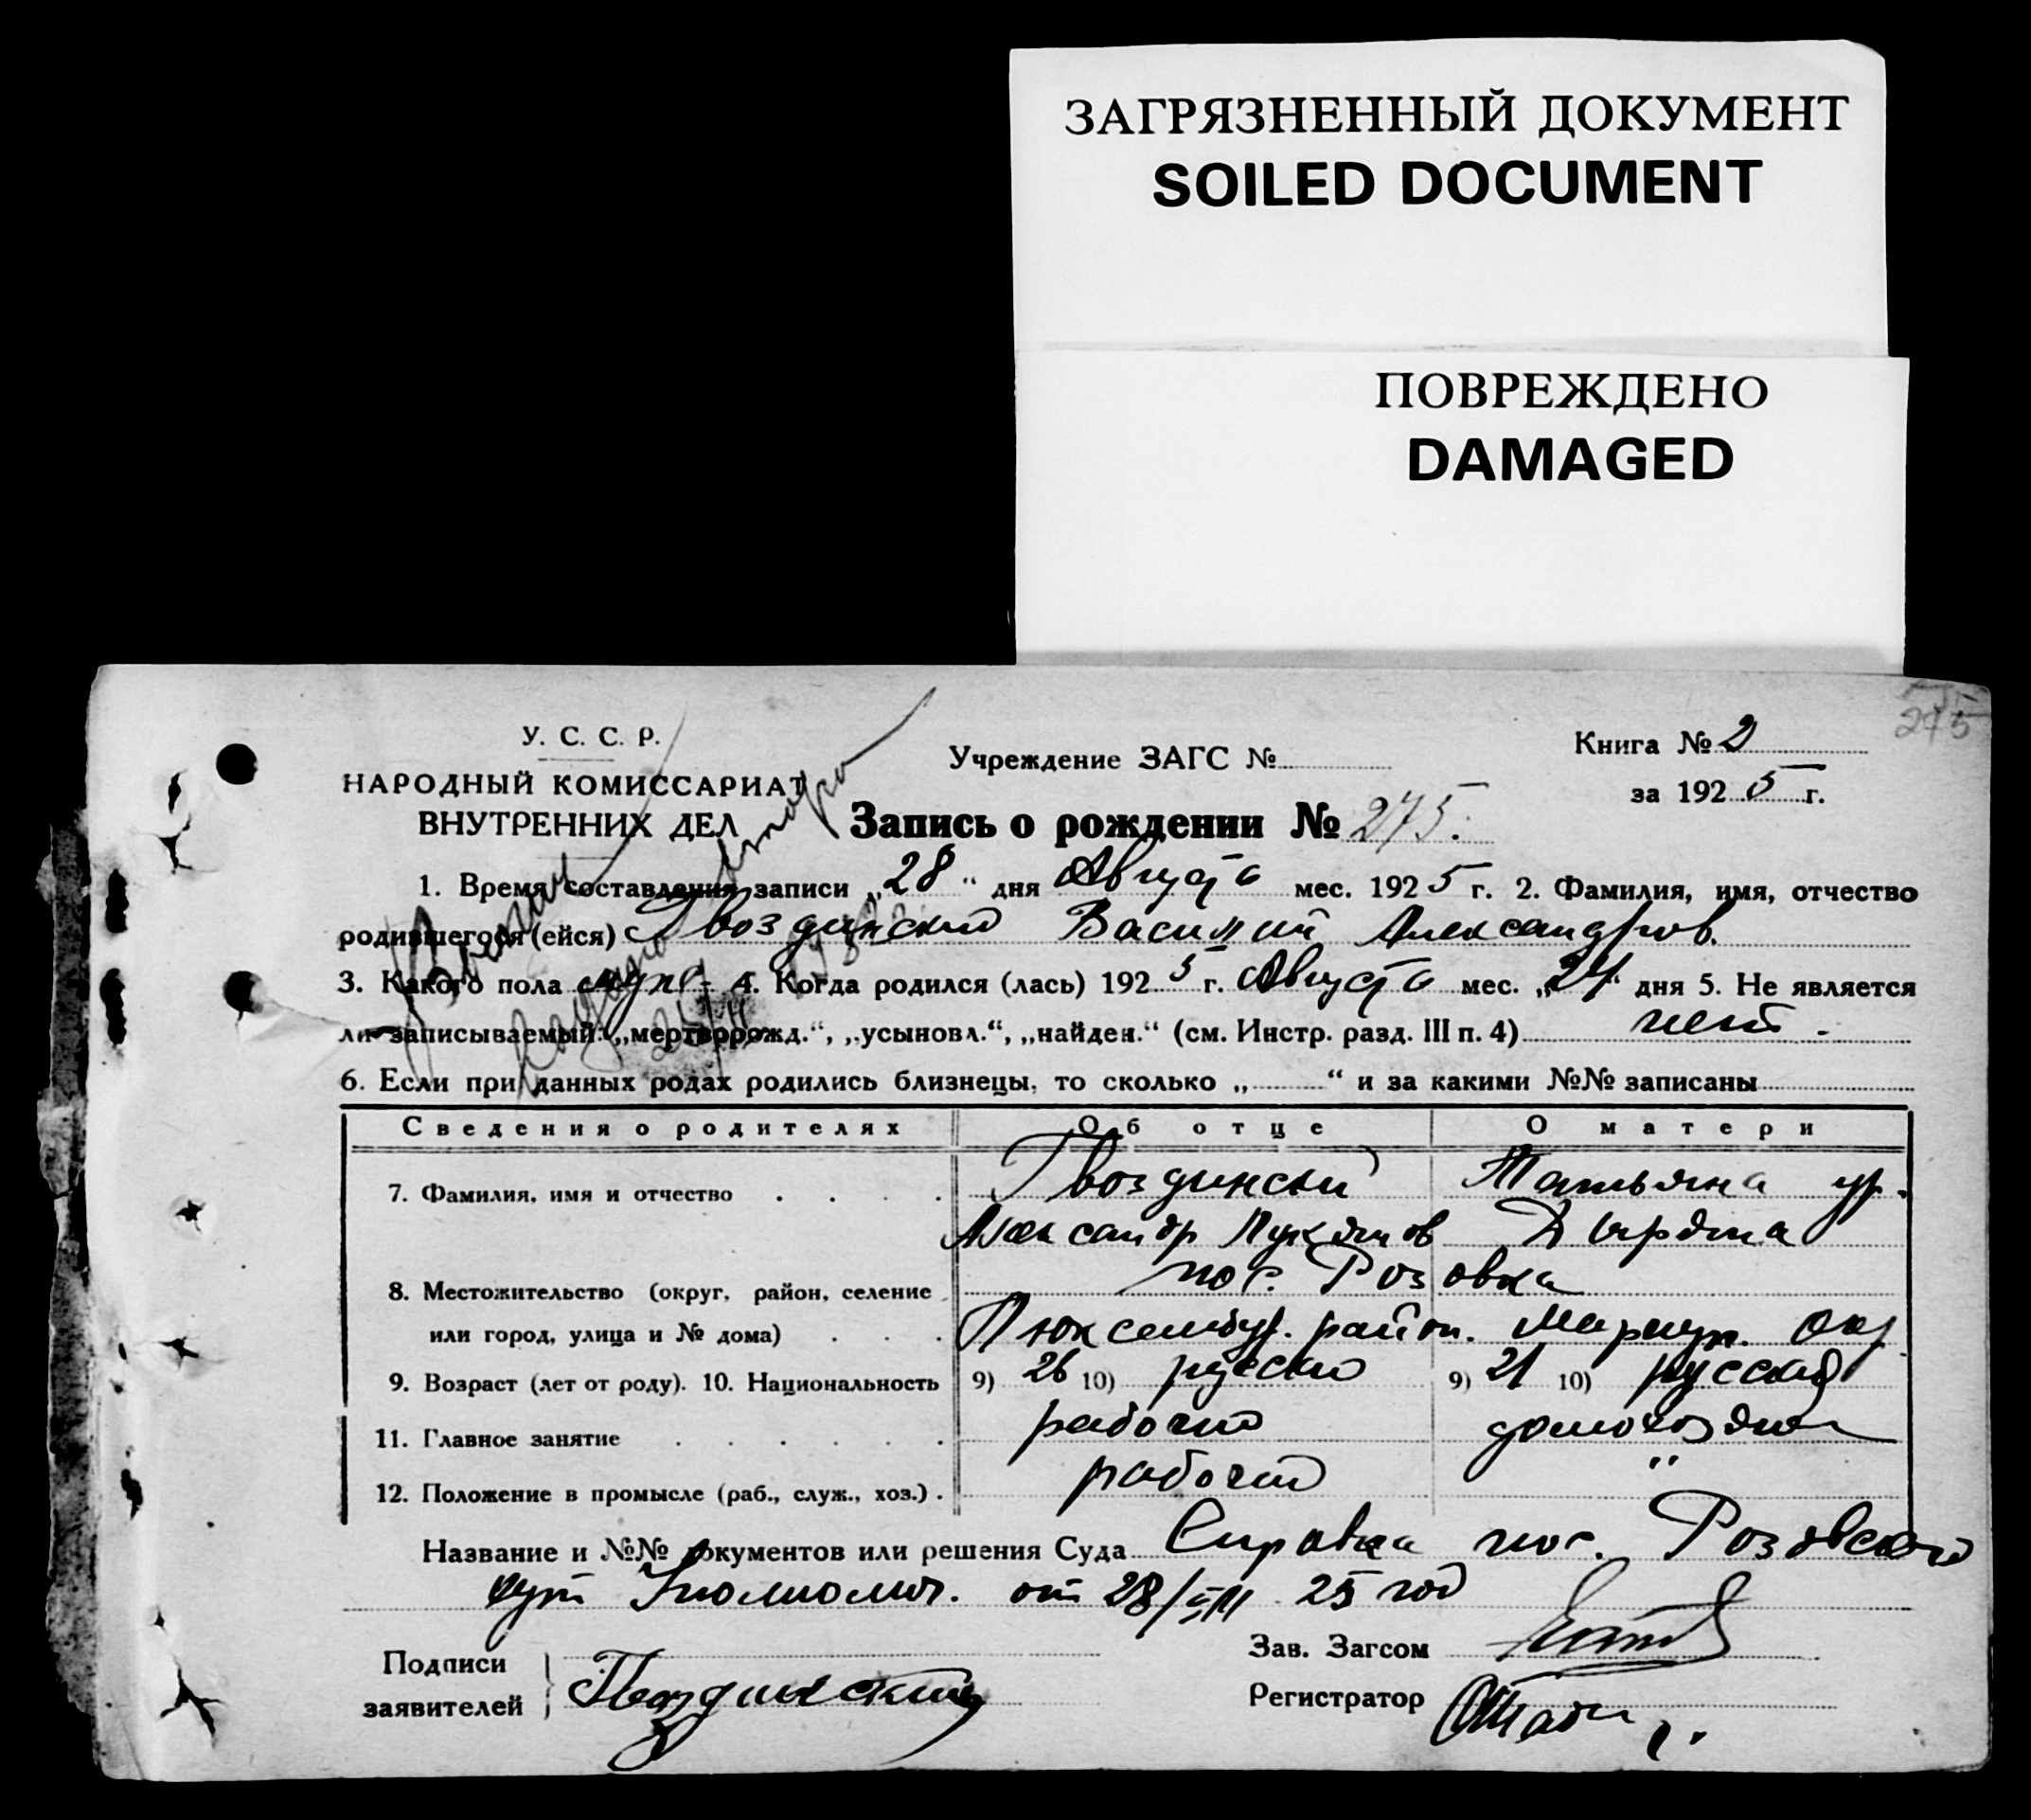 ЗАГРЯЗНЕННЫЙ ДОКУМЕНТ
SOILED DOCUMENT
ПОВРЕЖДЕНО
DAMAGED
275
У. С. С. Р.
НАРОДНЫЙ КОМИССАРИАТ
ВНУТРЕННИХ ДЕЛ
Учреждение ЗАГС №
Книга № 2
за 192 5 г.
Запись о рождении № 275.
1. Время составления записи „28“ дня Августа мес. 192 5 г. 2. Фамилия, имя, отчество
родившегося (ейся) Гвоздинский Василий Александров.
3. Какого пола муж- 4. Когда родился (лась) 192 5 г. Августа мес. „24“ дня 5. Не является
ли записываемый: „мертворожд.“, „усыновл.“, „найден.“ (см. Инстр. разд. III п. 4) нет -
6. Если при данных родах родились близнецы, то сколько „ “ и за какими №№ записаны
Сведения о родителях Об отце О матери
7. Фамилия, имя и отчество Гвоздинский Татьяна ур.
Александр Лукьянов
8. Местожительство (округ, район, селение пос. Розовка
или город, улица и № дома) Люксембур. район. Мариуп. окр
9. Возраст (лет от роду). 10. Национальность 9) 26 10) русский 9) 21 10) русская
11. Главное занятие рабочий домохозяйка
12. Положение в промысле (раб., служ., хоз.) рабочий "
Название и №№ документов или решения Суда Справка пос. Розовского
от 28/VIII 25 год
Подписи
заявителей Гвоздинский
Зав. Загсом
Регистратор